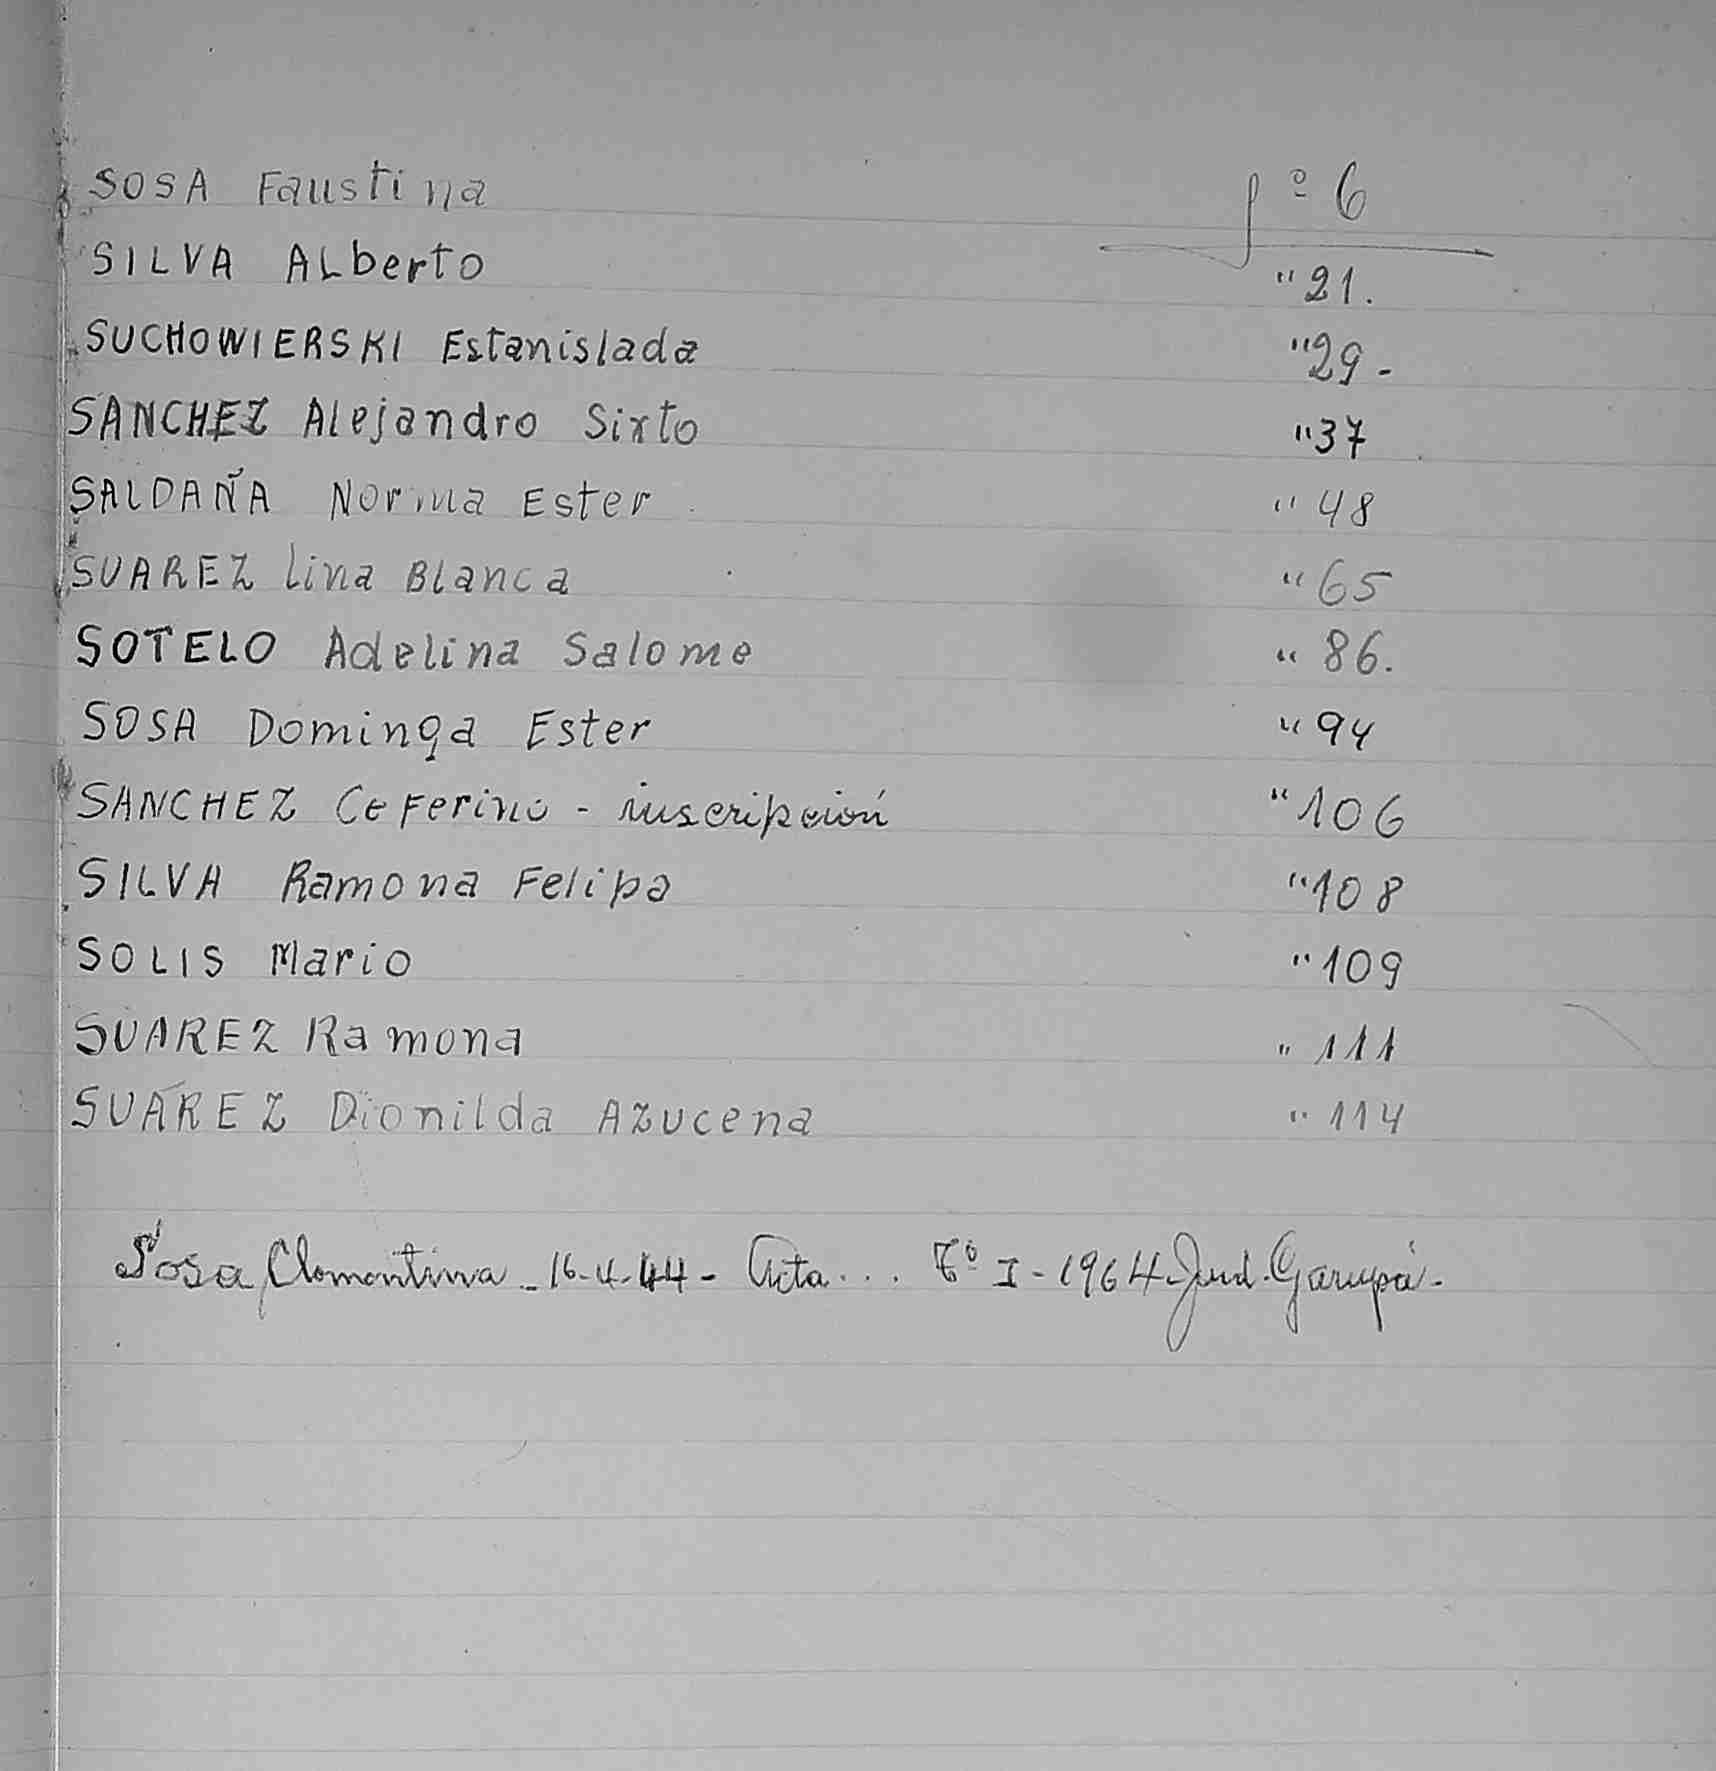 SOSA Faustina fº 6
SILVA Alberto " 21.
SUCHOWIERSKI Estanislada " 29-
SANCHEZ Alejandro Sixto " 37
SALDAÑA Norma Ester " 48
SUAREZ Lina Blanca " 65
SOTELO Adelina Salome " 86.
SOSA Dominga Ester " 94
SANCHEZ Ceferino - inscripción " 106
SILVA Ramona Felipa " 108
SOLIS Mario " 109
SUAREZ Ramona " 111
SUÁREZ Dionilda Azucena " 114
Sosa Clementina - 16-4-44 - Acta... Tº I - 1964 - Jud. Garupá -